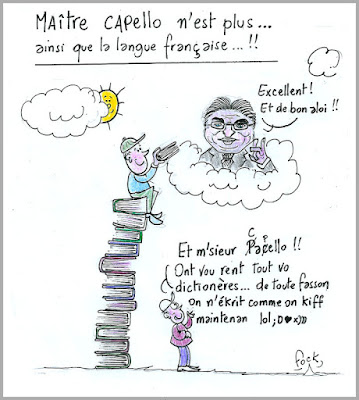 MAÎTRE CAPELLO n'est plus...
ainsi que la langue française...!!
Excellent!
Et de bon aloi !!
Et m'sieur Papello !!
C P
Ont vou rent tout vo
dictionères... de toute fasson
on n'ékrit comme on kiff
maintenan lol; D♥x)))
fock